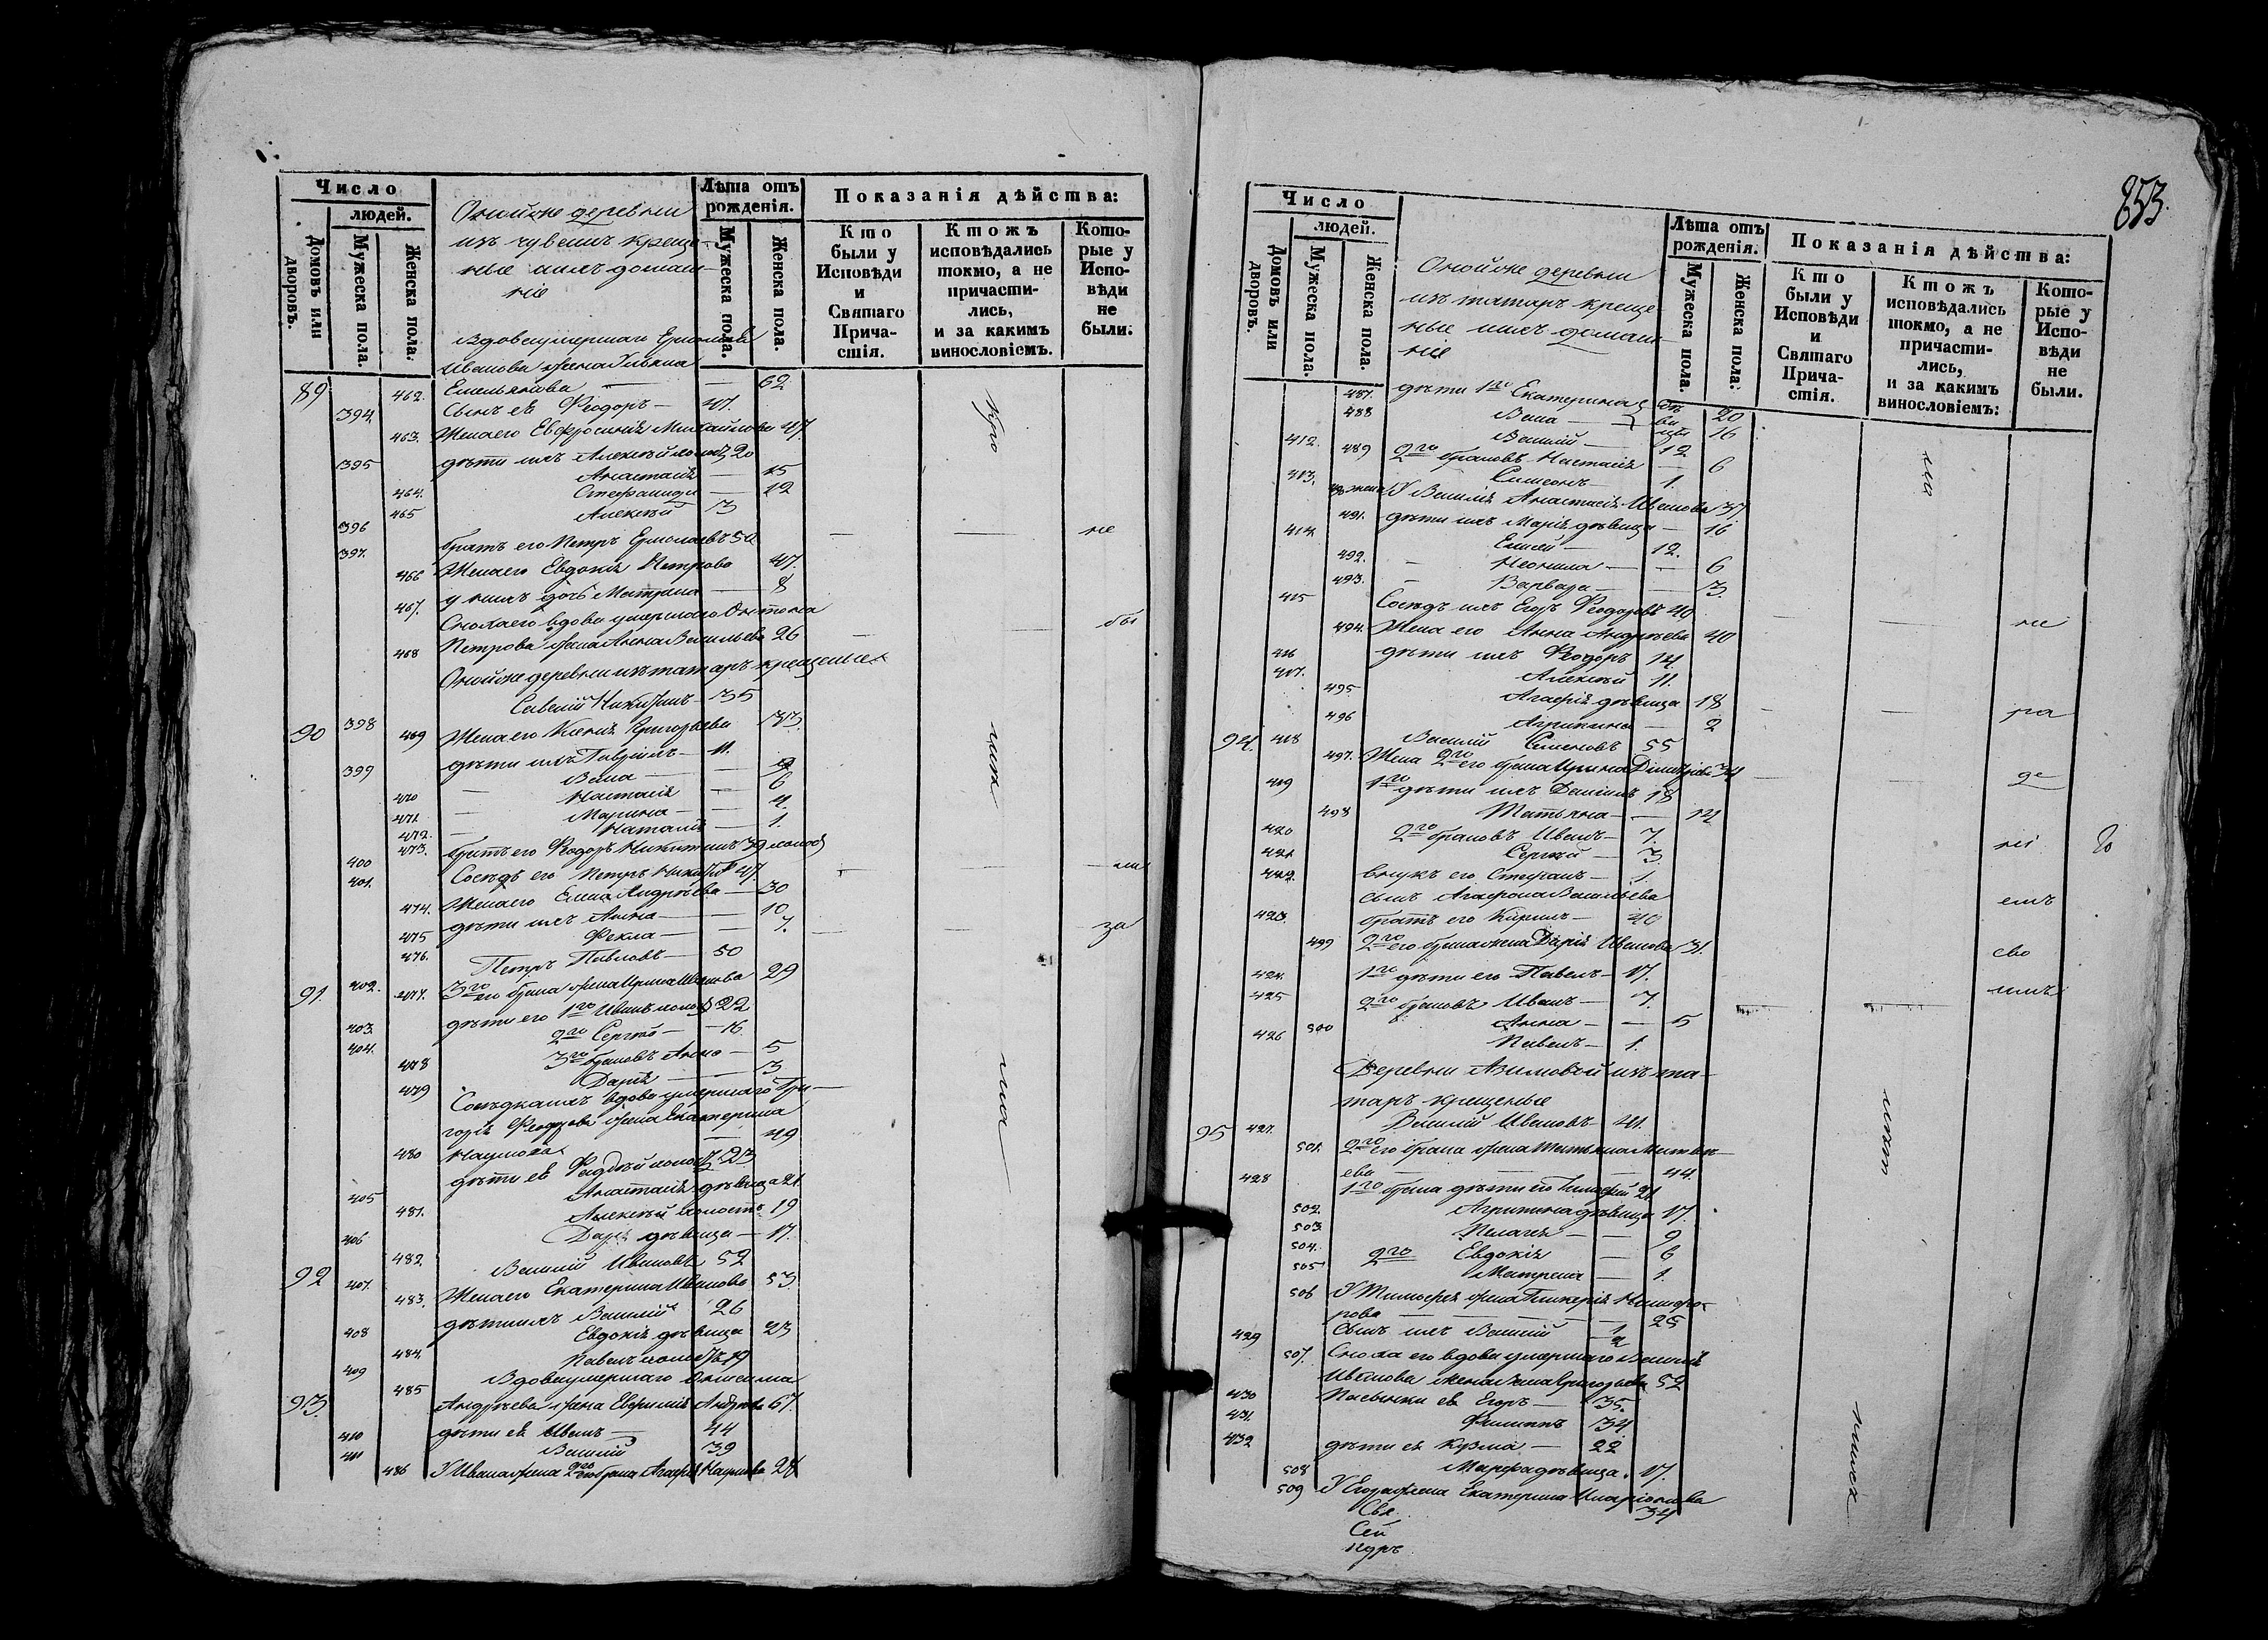 Число
людей.
Домовъ или дворовъ.
Мужеска пола.
Женска пола.
Онойже деревни
изъ чувашъ креще-
ные ихъ домаш-
ніе
Лѣта отъ рожденія.
Мужеска пола.
Женска пола.
Показанія дѣйства:
Кто были у Исповѣди и Святаго Причастія.
Ктожъ исповѣдались токмо, а не причастились, и за какимъ винословіемъ.
Которые у Исповѣди не были.
Вдова умершаго
Иванова жена
89 462. Емельянова — — 62
394. Сынъ её Феодоръ — 47.
463. Жена его Евфросинія Михайлова 47.
395 дѣти ихъ Алексѣй холост 20
464. Анастасія — 15
465 Стефанида — 12
396 Алексѣй 3
397. братъ его Петръ Ермолаевъ 50
466 Жена его Евдокія Петрова 47.
467. у нихъ дочь Матрена — 8
Сноха его вдова умершаго Антона
468 Петрова жена Анна Васильева 26
Онойже деревни изъ татаръ крещеные
90 398 Савелій Никитинъ — 35
469 Жена его Ксенія Григорьева 33.
399 дѣти ихъ Гавріилъ — 11.
470 Васса — 9
471 — Настасія — 6
472. — Марина — 4.
473. Наталія — 1.
400 братъ его Феодоръ Никитинъ 39 холост
401. Сосѣдъ его Петръ 47.
474. Жена его Елена Андрѣева — 30
475 дѣти ихъ Анна — — 10
476. Фекла — — 7.
91. 402. Петръ Павловъ — 50
477. 3го его брака жена Ирина Иванова 29
403. дѣти его 1го Иванъ холост 22
404. 2го Сергѣй — 16
478 3го браковъ Анна — 5
479 Дарія — 3
Сосѣдка ихъ вдова умершаго Гри-
горія Феодорова жена Екатерина
480 Наумова — 49
405 дѣти её Фадѣй холост 23
481. Анастасія дѣвица 21
406 Алексѣй холостъ 19
482 Дарія дѣвица — 17.
92 407. Василій Ивановъ 52
483. Жена его Екатерина Иванова 53.
408 дѣти ихъ Василій 26
484. Евдокія дѣвица 23
409 Павелъ холостъ 19
Вдова умершаго Онисима
93. 485 Андрѣева жена Евфимія Андрѣева 67.
410 дѣти её Иванъ — 44
411 Василій 39
486 У Ивана жена 2го его брака Агафія Наумова 24
не
бы
ли
за
853.
Число
людей.
Домовъ или дворовъ.
Мужеска пола.
Женска пола.
Онойже деревни
изъ татаръ креще-
ные ихъ домаш-
ніе
Лѣта отъ рожденія.
Мужеска пола.
Женска пола.
Показанія дѣйства:
Кто были у Исповѣди и Святаго Причастія.
Ктожъ исповѣдались токмо, а не причастились, и за какимъ винословіемъ:
Которые у Исповѣди не были.
487. дѣти 1го Екатерина дѣ 20
488 Васса — вицы 16
412. Василій — 12
489 2го браковъ Настасія — 6
413. Симеонъ — 1.
490 жена У Василія Анастасія Иванова 37
491. дѣти ихъ Марія дѣвица — 16
414. Елисей — 12.
492. — Неонила — — 6
493. — Варвара — — 3.
415 Сосѣдъ ихъ Егоръ Феодоровъ 40
494. Жена его Анна Андрѣева 40
416 дѣти ихъ Феодоръ 14.
417. Алексѣй 11.
495 Агафія дѣвица 18
496 Агрипина — 2
94. 418 Василій Семеновъ 55
497. Жена 2го его брака Ирина Дімитріева 34
419 1го дѣти ихъ Даніилъ 18
498 Татьяна — — 14
420 2го браковъ Иванъ — 7.
421 Сергѣй — 3
422. внукъ его Стефанъ — 1.
сынъ Агафона Васильева
423. братъ его Кирилъ — 40
499 2го его брака жена Дарія Иванова 31.
424. 1го дѣти его Павелъ — 17.
425 2го браковъ Иванъ — 7.
500 Анна — — 5
426 Павелъ — 1.
Деревни Азимовой изъ та-
таръ крещеные
95 427. Василій Ивановъ 41.
501. 2го его брака жена Татьяна Матвѣ-
ева — — — 44.
428 1го брака дѣти его Тимофей 21.
502. Агрипина дѣвица 17.
503. Пелагея — — 9
504. 2го Евдокія — 6
505 Матрена — 1.
506 У Тимофея жена Гликерія Никифо-
рова — — — 25
429 Сынъ ихъ Василій —
507. Сноха его вдова умершаго Василія
Иванова жена Анна Григорьева 52
430 Пасынки её Егоръ — 35.
431. Филиппъ 34
432 дѣти её Кузма — 22
508 Марфа дѣвица. 17.
509 У Егора жена Екатерина Иларіонова
34
не
ра
де
ні
емъ
сво
имъ
Свя
Сей